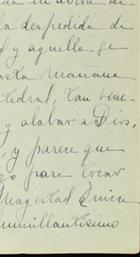 la despedida de
y aquella ge
esta mañana
tedral, tan bene-
y alabar a Dios,
, y parece que
para tocar
Magestad Divin
humillantísimo